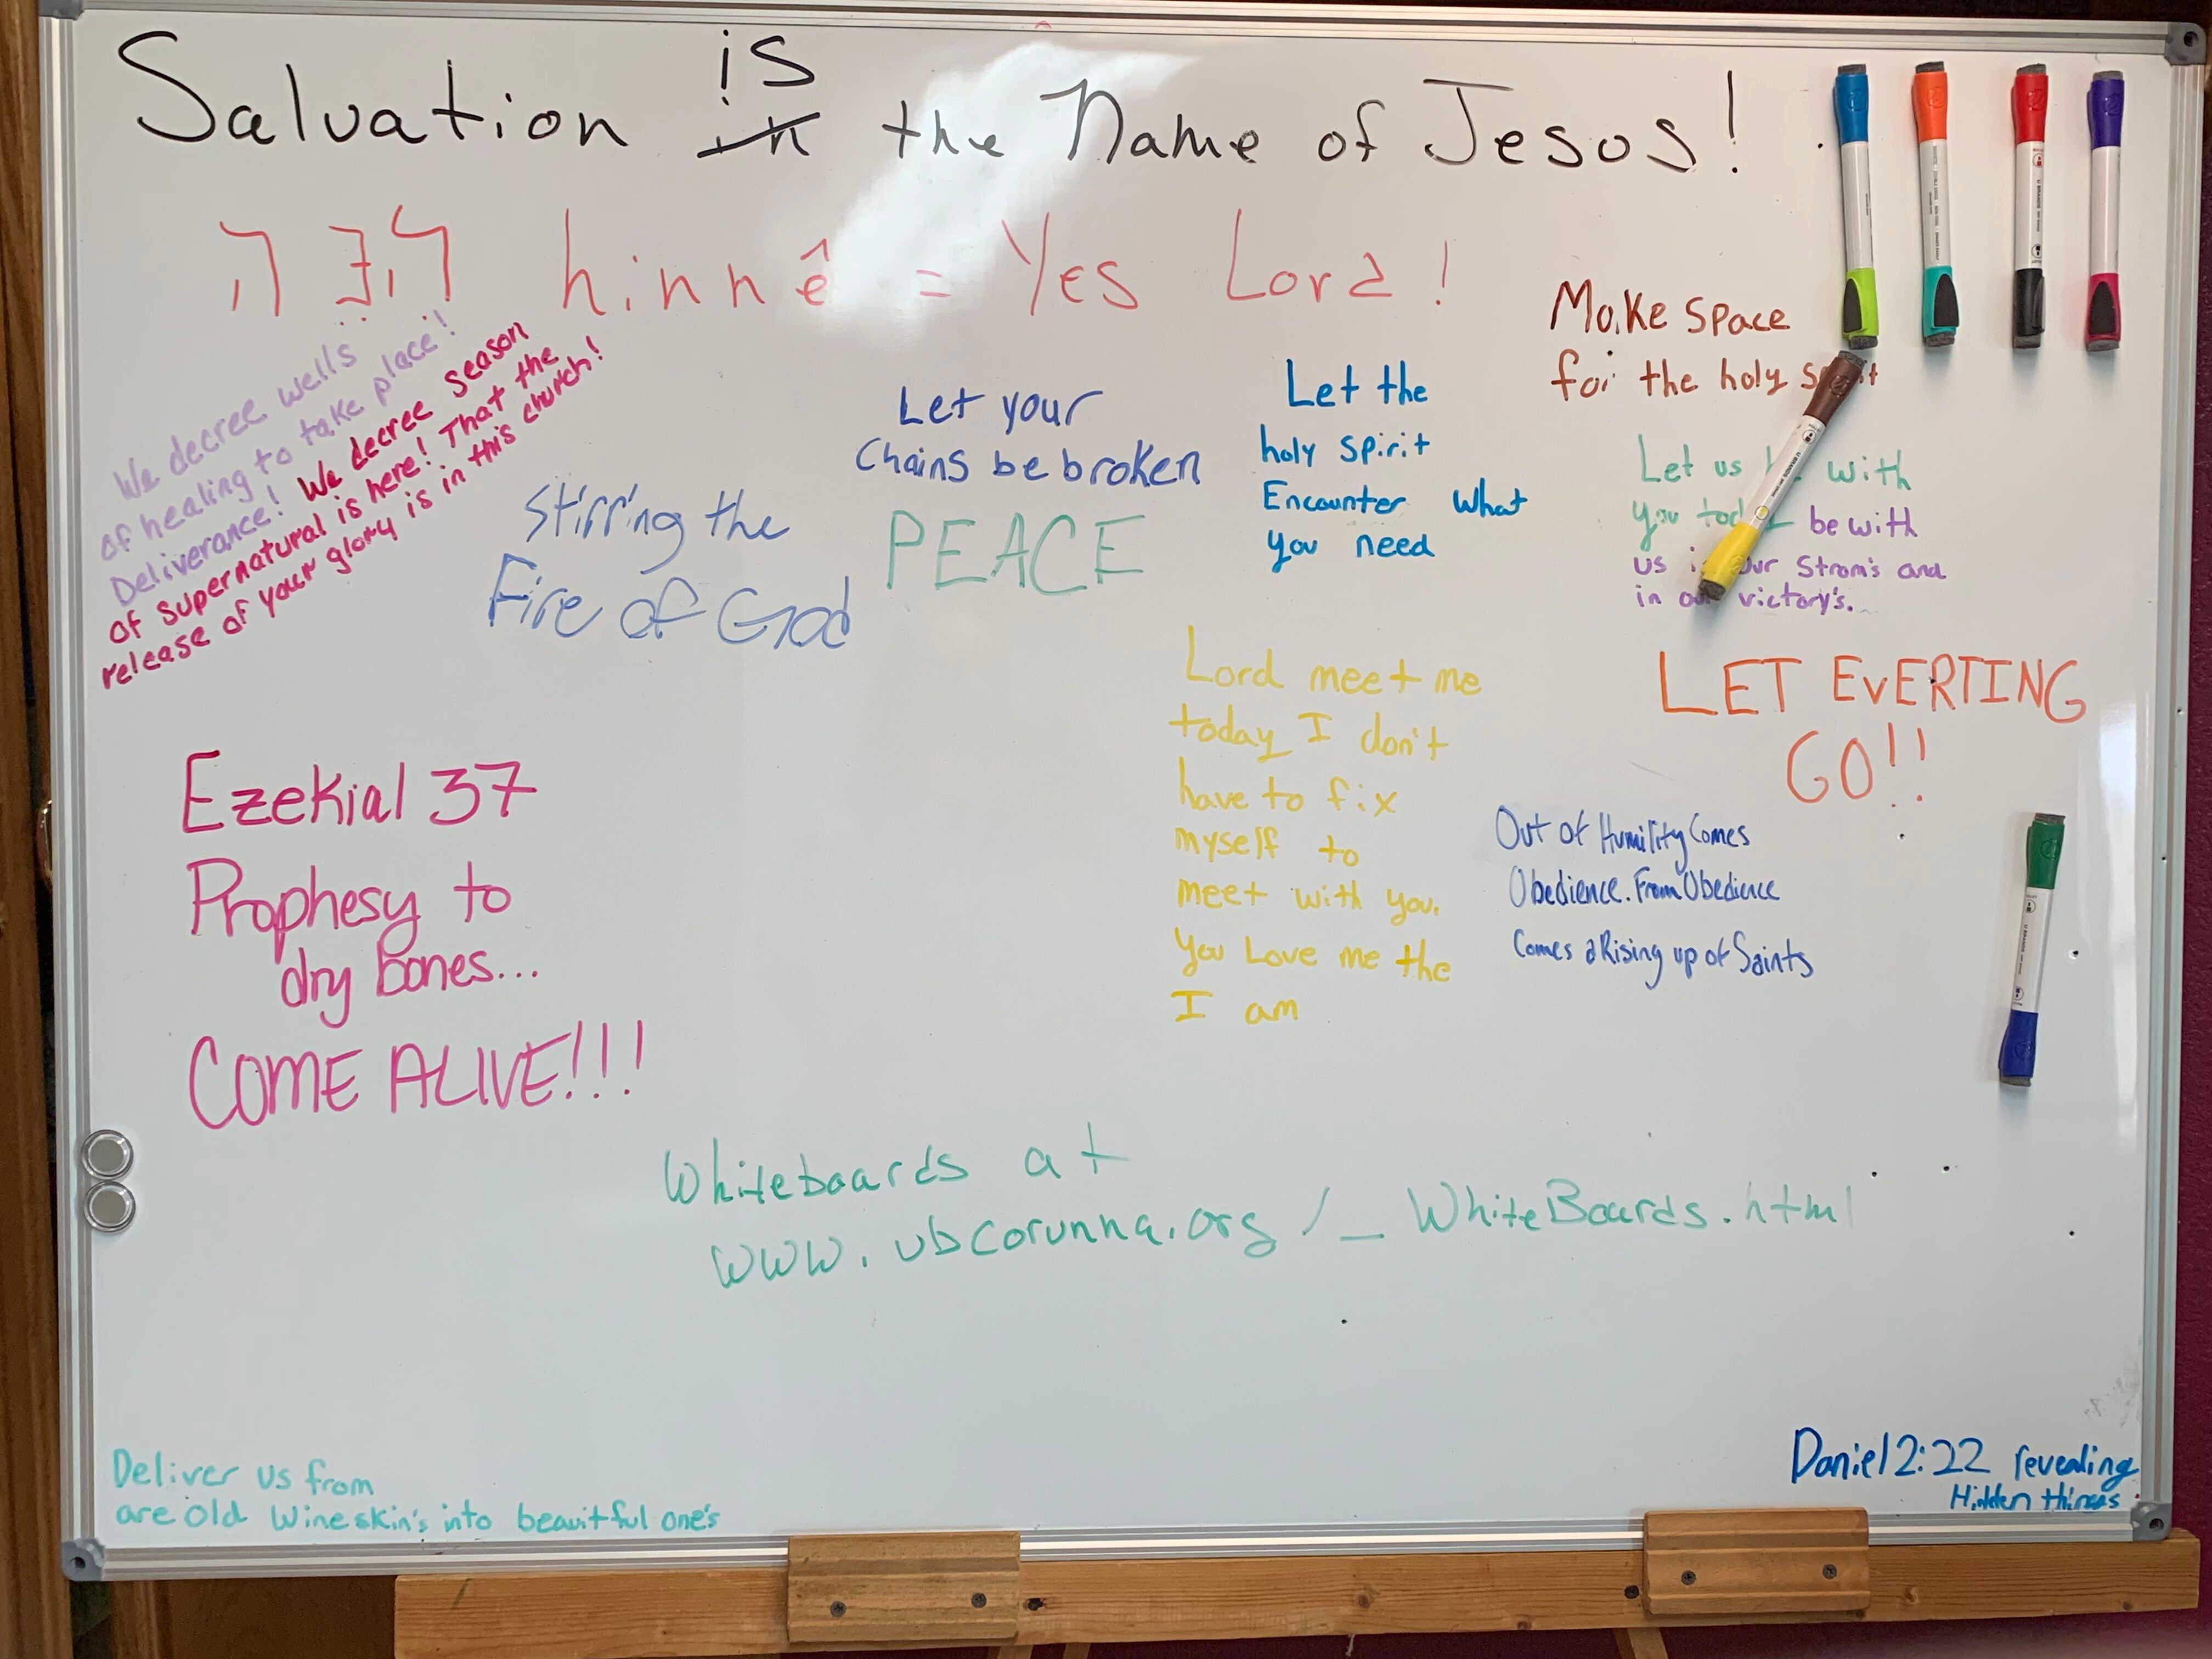 Salvation is the Name of Jesos!
hinnê = Yes Lord!
We decree wells
of healing to take place!
Deliverance! We decree season
of supernatural is here! That the
release of your glory is in this church!
Stirring the
Fire of God
Let your
Chains be broken
PEACE
Let the
holy spirit
Encounter what
you need
Make space
for the holy
Let us with
you be with
us our Strom's and
in victory's.
LET EvERTING
GO!!
Lord meet me
today I don't
have to fix
myself to
meet with you.
you Love me the
I am
Out of Humility Comes
Obedience. From Obedience
Comes a Rising up of Saints
Ezekial 37
Prophesy to
dry bones...
COME ALIVE!!!
Whiteboards at
www.ubcorunna.org/_WhiteBoards.html
Deliver us from
are old wineskin's into beauitful one's
Daniel 2:22 revealing
Hidden things